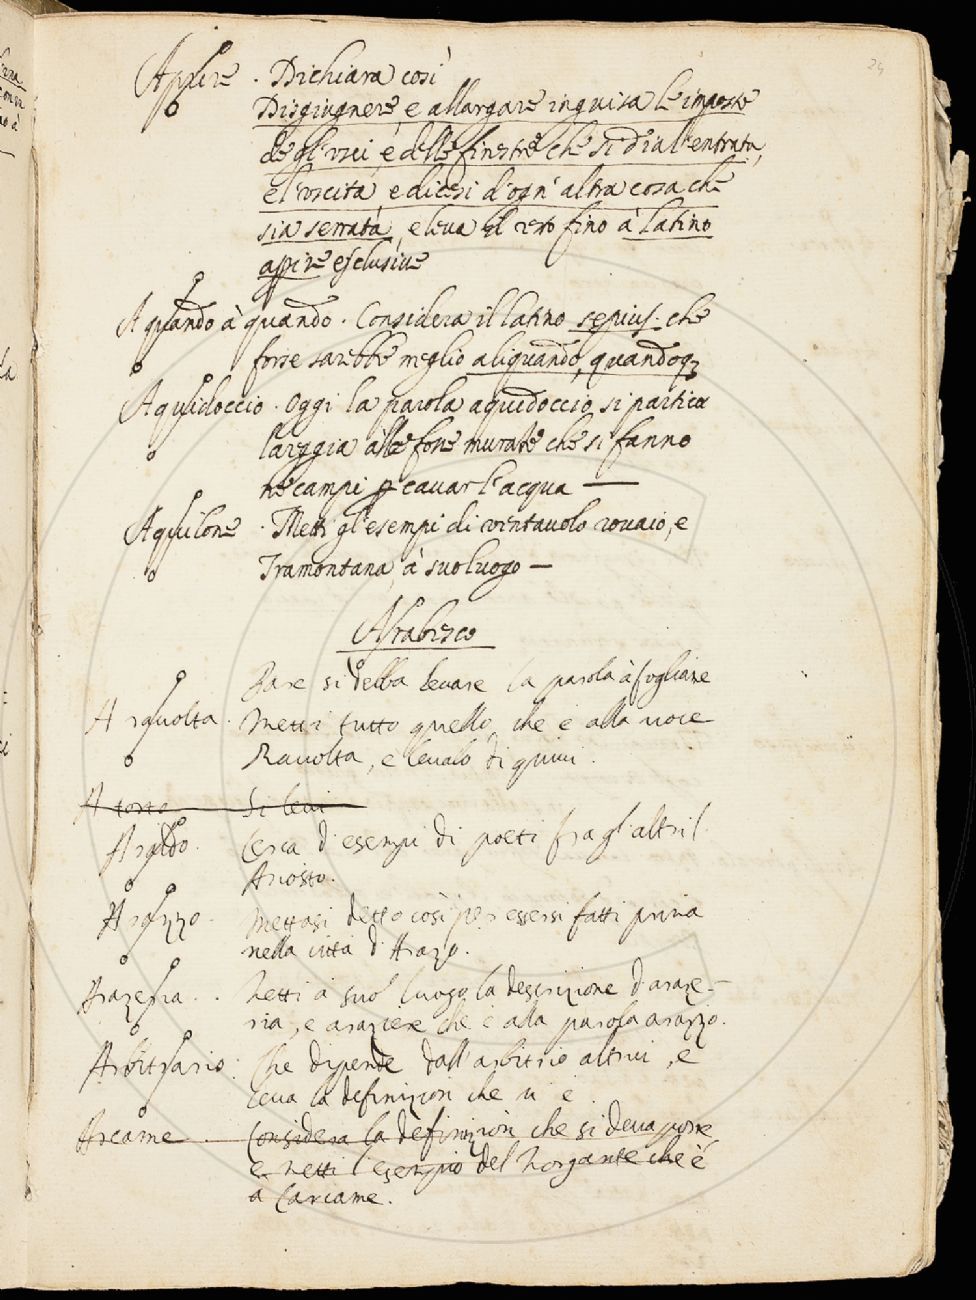 24
Aprire. Dichiara così
Disgiugnere, e allargare in guisa le imposte
de gl'usci, e delle finestre che si dia l'entrata,
e l'uscita, e dicesi d'ogn'altra cosa che
sia serrata, e leva il resto fino à latino
aprire esclusive
A quando à quando. Considera il latino sepius. che
forse sarebbe meglio aliquando, quandoq3
Aquidoccio. Oggi la parola aquidoccio si partico
lareggia alle fosse murate che si fanno
ne campi p cavar l'acqua —
Aquilone. Metti gl'esempi di ventavolo rovaio, e
Tramontana, à suo luogo —
Arabesco
Pare si debba levare la parola à fogliame
A rivolta. Metti tutto quello, che è alla voce
Rivolta, e levalo di quivi.
A torto Si levi
Araldo. Cerca d'esempi di poeti fra gl'altri l'
Ariosto.
Arazzo. Mettasi detto così per essersi fatti prima
nella città d'Arazo.
Arazeria.. Metti à suo luogo la descrizione d'araze-
ria, e araziere che è alla parola arazzo.
Arbitrario: Che dipende dall'arbitrio altrui, e
leva la definizion che vi è.
Arcame. Considera la definizion che si deva porre
e metti l'esempio del Morgante che è
a Carcame.